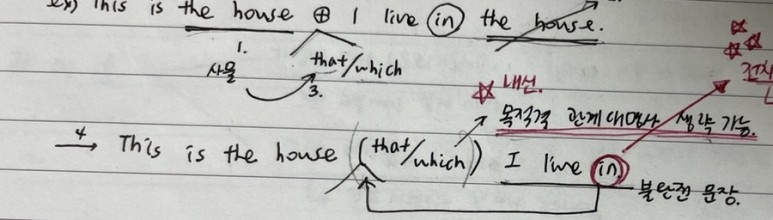 ex) This is the house ⊕ I live in the house.
1.
사물 that/which
3.
☆ 내선.
목적격 관계대명사 생략 가능.
4 → This is the house (that/which) I live in.
불완전 문장.